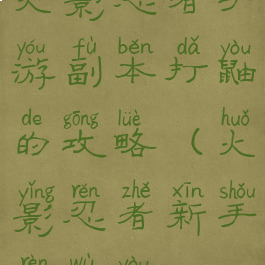 火影忍者手
yóu fù běn dǎ yòu
游副本打鼬
de gōng lüè huǒ
的攻略（火
yǐng rěn zhě xīn shǒu
影忍者新手
rèn wù yòu